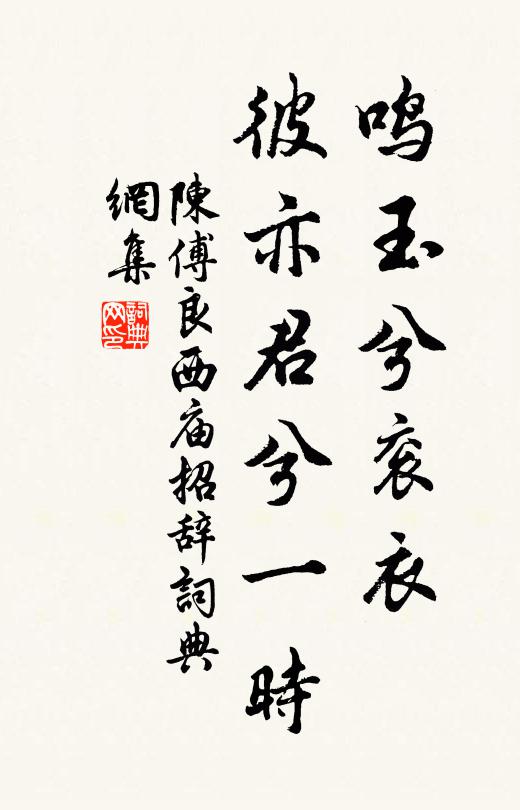 鸣玉兮衮衣
彼亦君兮一時
陳傅良西庙招辞詞典
網集
詞典
网印